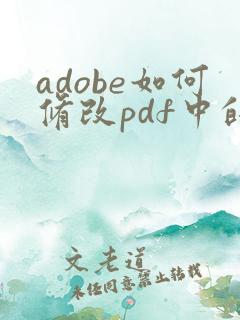 adobe如何
修改pdf中的
文老道
未经同意禁止转载